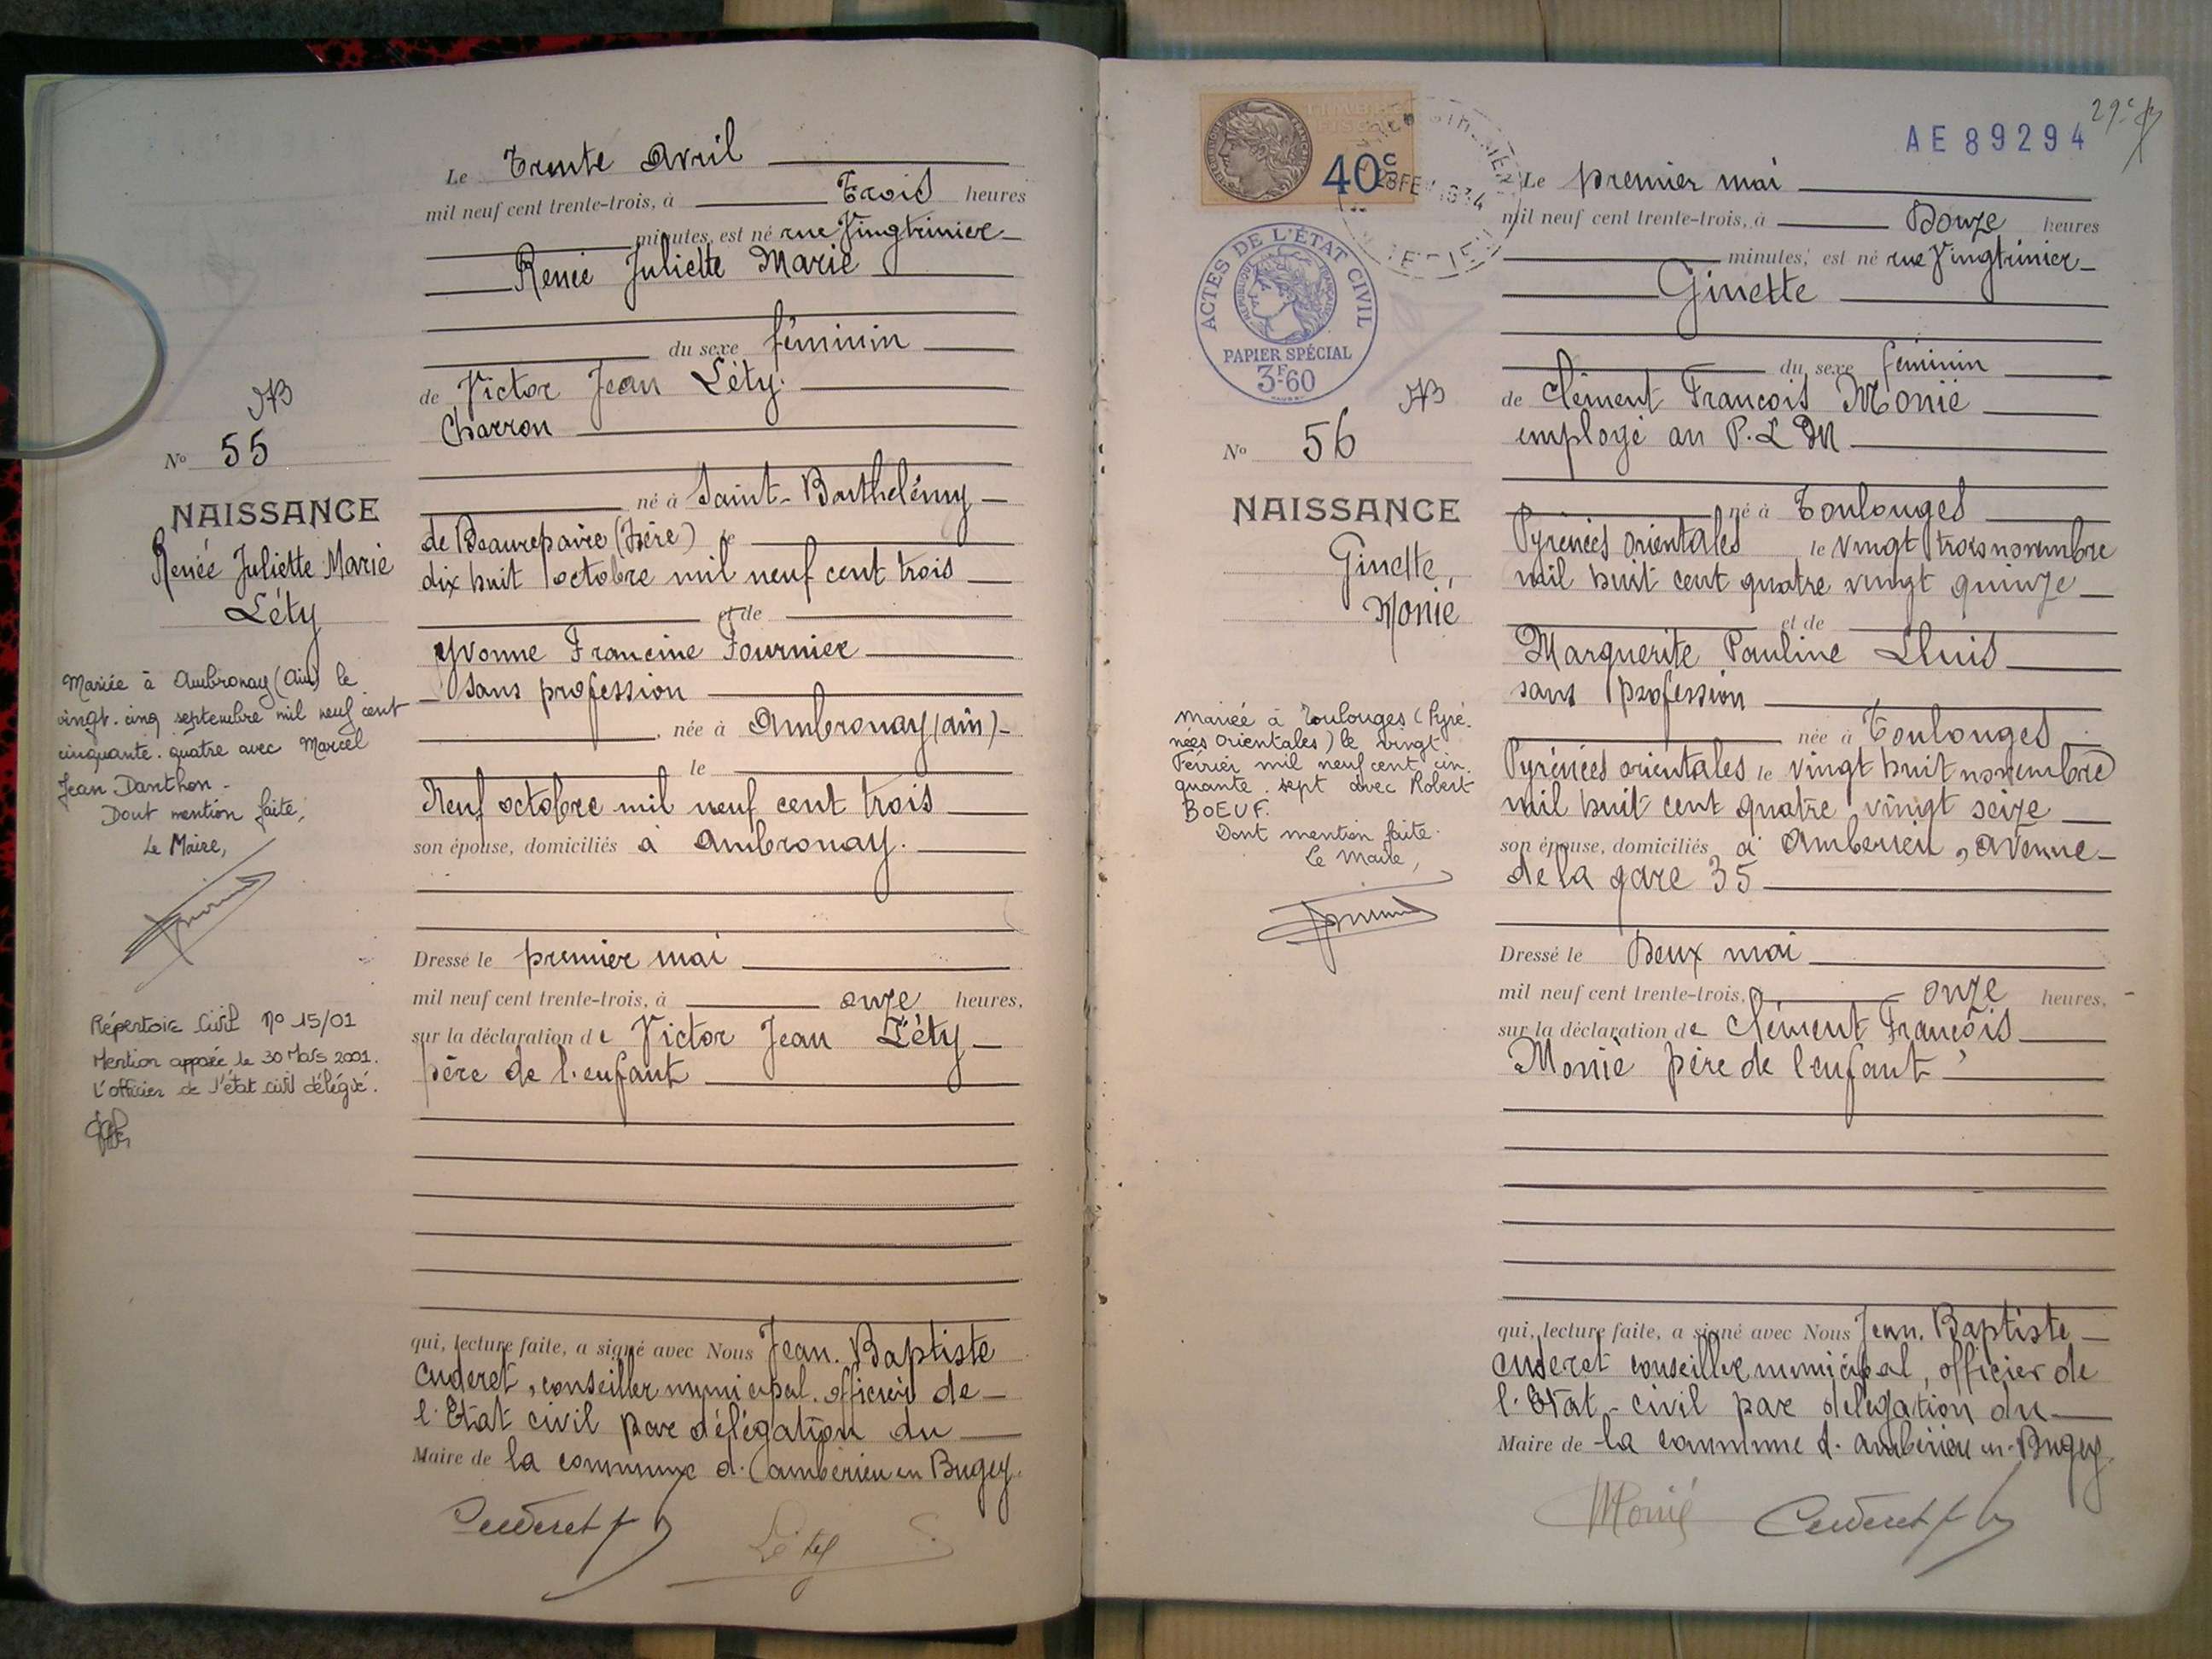 Le Trente Avril
mil neuf cent trente-trois, à Trois heures
minutes, est né rue Vingtrinier
Renée Juliette Marie
du sexe féminin
de Victor Jean Léty.
Charron
né à Saint-Barthélémy
de Beaurepaire (Isère) le
dix huit octobre mil neuf cent trois
et de
Yvonne Francine Fournier
sans profession
, née à Ambronay (ain)
le
Neuf octobre mil neuf cent trois
son épouse, domiciliés à Ambronay.
Dressé le premier mai
mil neuf cent trente-trois, à onze heures,
sur la déclaration de Victor Jean Léty
père de l'enfant
qui, lecture faite, a signé avec Nous Jean. Baptiste
Cuderet, conseiller municipal. officier de
l'Etat civil par délégation du
Maire de la commune d'ambérieu en Bugey.
Cuderet
Léty
No 55
NAISSANCE
Renée Juliette Marie
Léty
Mariée à Ambronay (Ain) le
vingt-cinq septembre mil neuf cent
cinquante-quatre avec Marcel
Jean Danthon-
Dont mention faite,
Le Maire,
Répertoire Civil No 15/01
Mention apposée le 30 Mars 2001.
L'officier de l'état civil délégué.
TIMBRE
FISCAL
40c
ACTES DE L'ÉTAT CIVIL
RÉPUBLIQUE FRANÇAISE
PAPIER SPÉCIAL
3F60
AE 89294
29e
Le premier mai
mil neuf cent trente-trois, à Douze heures
minutes, est né rue Vingtrinier
Ginette
du sexe féminin
de Clément François Monié
employé au P.L.M
né à Toulouges
Pyrénées orientales le vingt trois novembre
mil huit cent quatre vingt quinze
et de
Marguerite Pauline Lluis
sans profession
née à Toulouges
Pyrénées orientales le vingt huit novembre
mil huit cent quatre vingt seize
son épouse, domiciliés à Amberieu, avenue
de la gare 35
Dressé le Deux mai
mil neuf cent trente-trois, à onze heures,
sur la déclaration de Clément François
Monié père de l'enfant
qui, lecture faite, a signé avec Nous Jean. Baptiste
Cuderet conseiller municipal, officier de
l'Etat-civil par délégation du
Maire de la commune d'ambérieu en-Bugey
Monié
Cuderet
No 56
NAISSANCE
Ginette,
Monié
Mariée à Toulouges (Pyré-
nées Orientales) le vingt
Février mil neuf cent cin-
quante-sept avec Robert
BOEUF.
Dont mention faite.
Le Maire,